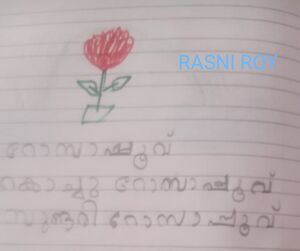 RASNI ROY
റോസാപ്പൂവ്
കൊച്ചു റോസാപ്പൂവ്
സുന്ദരി റോസാപ്പൂവ്